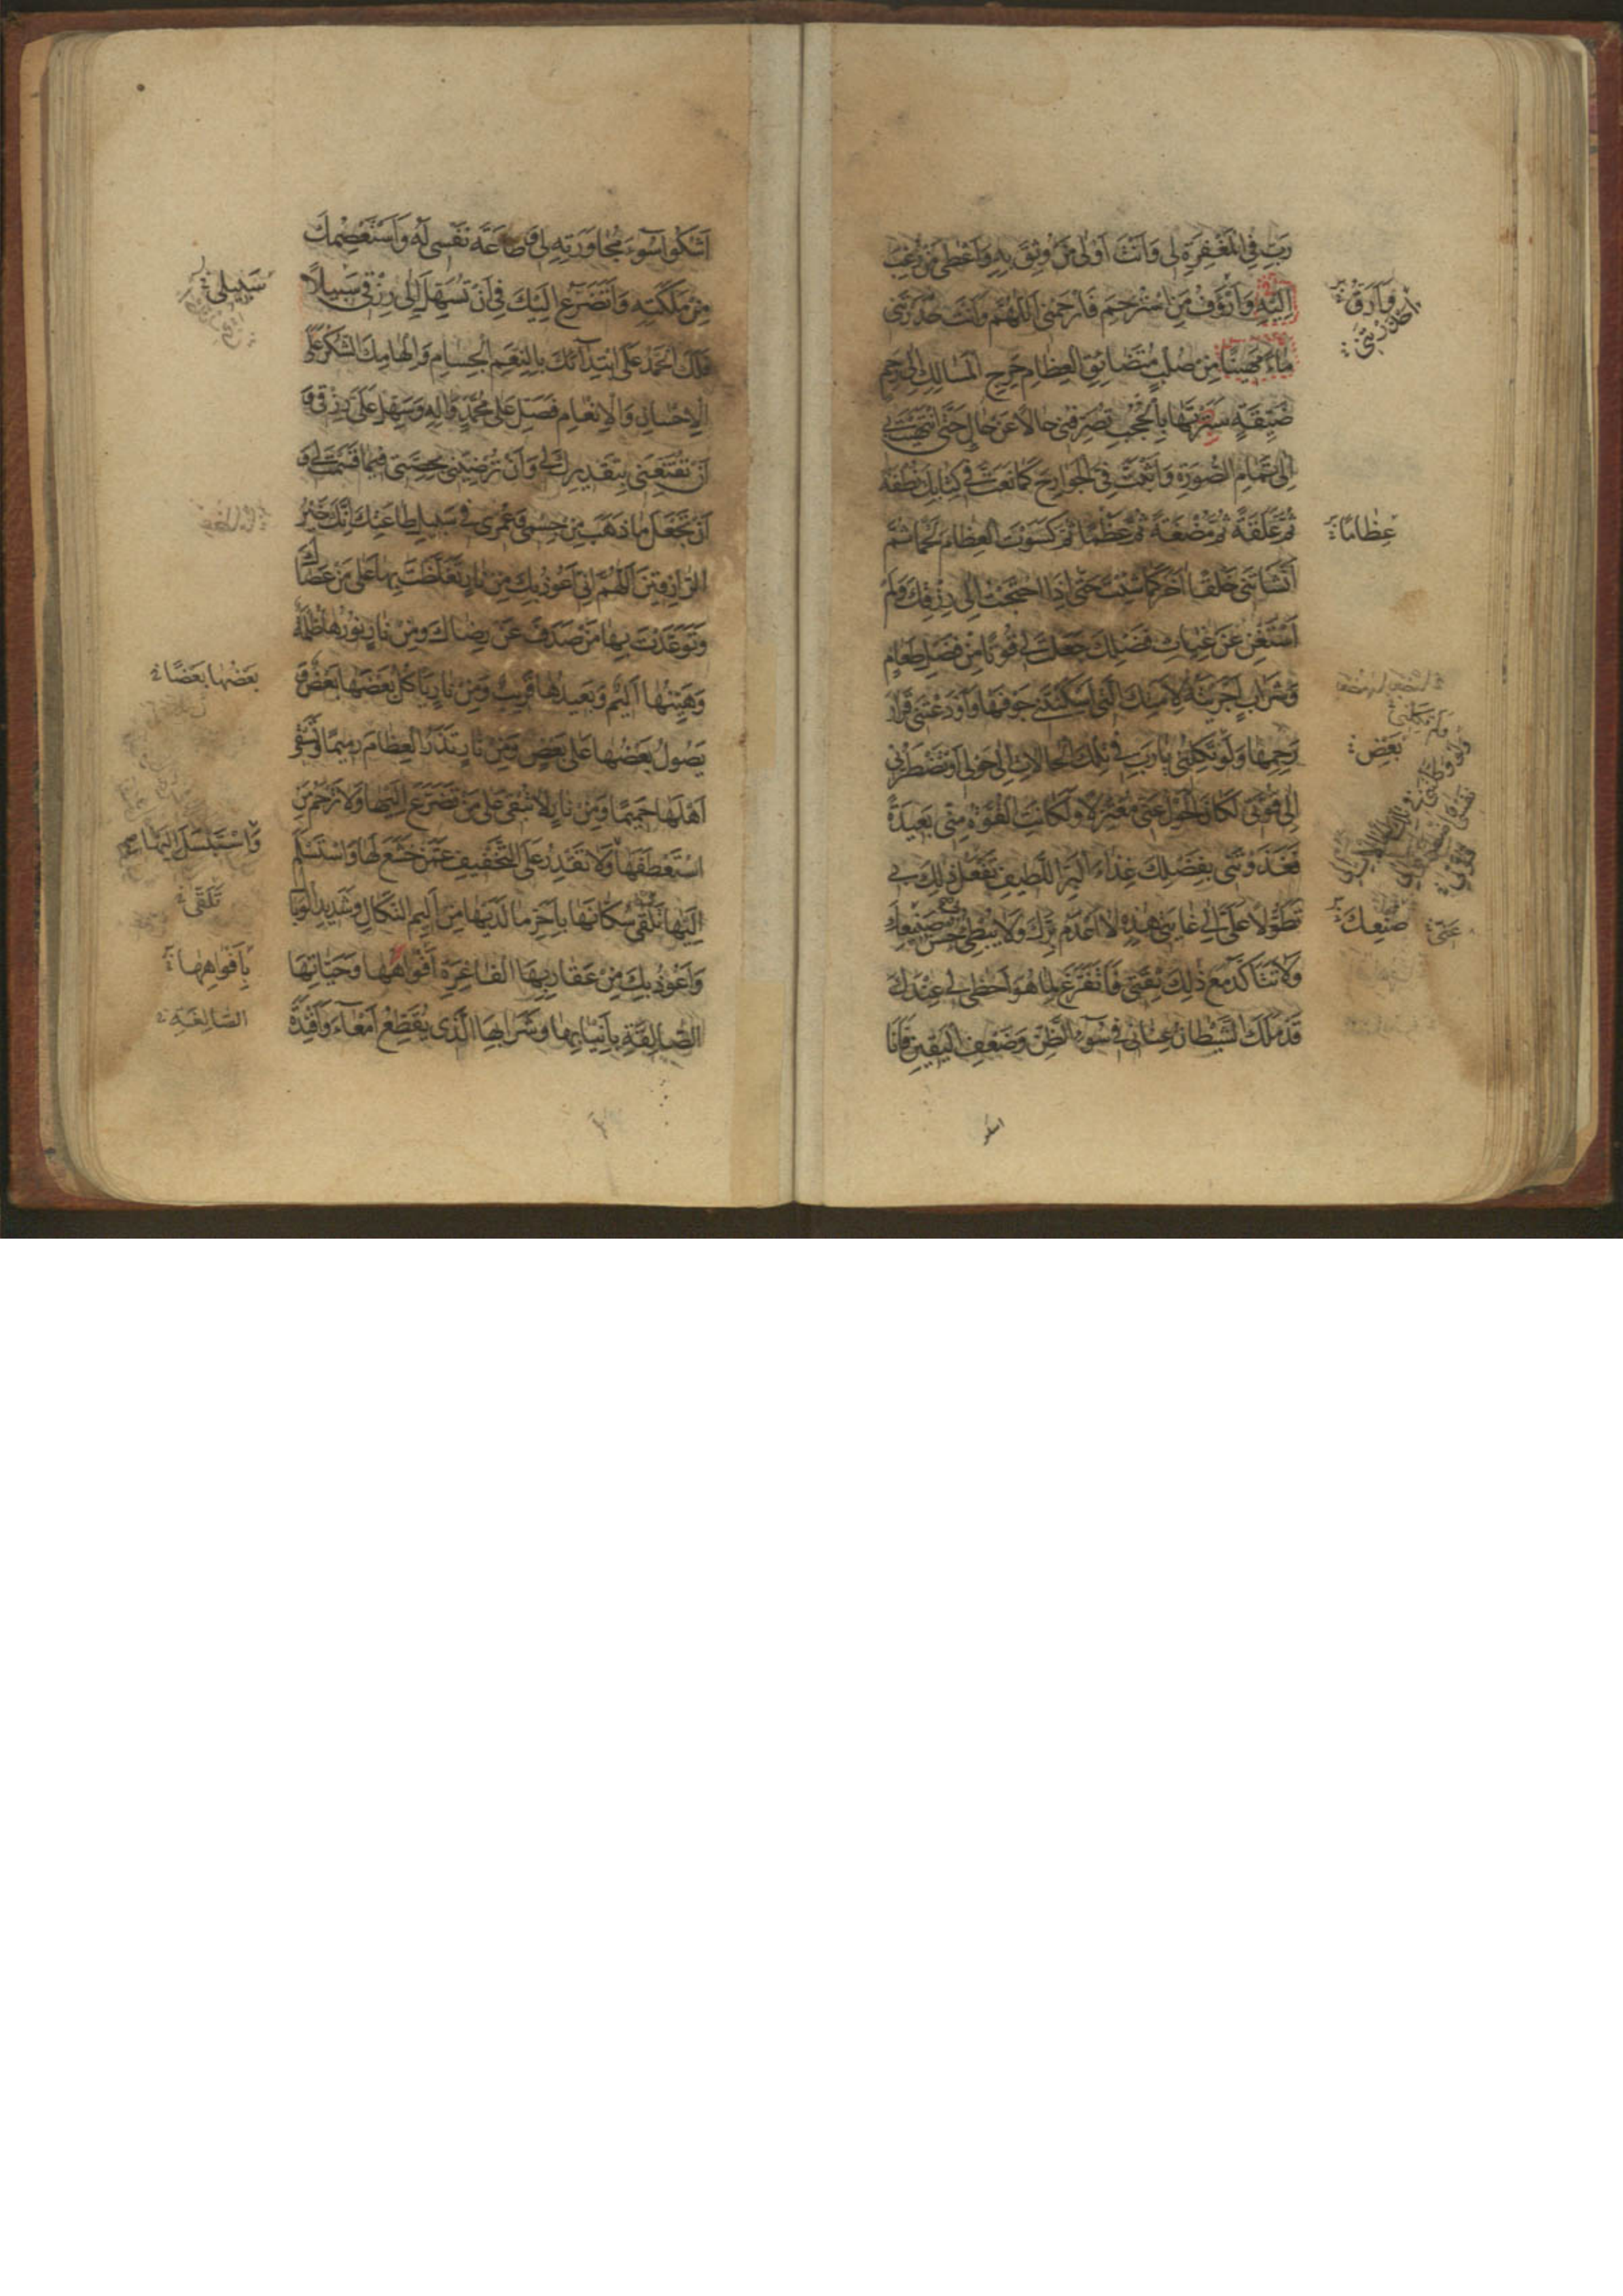 رَبِّ فِي الْمَغْفِرَةِ لِي وَاَنْتَ اَوْلٰى مَنْ وُثِقَ بِهِ وَاَعْطٰى مَنْ رُغِبَ
اِلَيْهِ وَاَرْؤَفُ مَنِ اسْتُرْحِمَ فَارْحَمْنِي اَللّٰهُمَّ وَاَنْتَ حَدَرْتَنِي
مَاءً مَهِينًا مِنْ صُلْبٍ مُتَضَائِقِ الْعِظَامِ حَرِجِ الْمَسَالِكِ اِلٰى رَحِمٍ
ضَيِّقَةٍ سَتَرْتَهَا بِالْحُجُبِ تُصَرِّفُنِي حَالًا عَنْ حَالٍ حَتَّى انْتَهَيْتَ بِي
اِلٰى تَمَامِ الصُّورَةِ وَاَثْبَتَّ فِيَّ الْجَوَارِحَ كَمَا نَعَتَّ فِي كِتَابِكَ نُطْفَةً
ثُمَّ عَلَقَةً ثُمَّ مُضْغَةً ثُمَّ عَظْمًا ثُمَّ كَسَوْتَ الْعِظَامَ لَحْمًا ثُمَّ
اَنْشَأْتَنِي خَلْقًا اٰخَرَ كَمَا شِئْتَ حَتّٰى اِذَا احْتَجْتُ اِلٰى رِزْقِكَ وَلَمْ
اَسْتَغْنِ عَنْ غِيَاثِ فَضْلِكَ جَعَلْتَ لِي قُوتًا مِنْ فَضْلِ طَعَامٍ
وَشَرَابٍ اَجْرَيْتَهُ لِاَمَتِكَ الَّتِي اَسْكَنْتَنِي جَوْفَهَا وَاَوْدَعْتَنِي قَرَارَ
رَحِمِهَا وَلَوْ تَكِلُنِي يَا رَبِّ فِي تِلْكَ الْحَالَاتِ اِلٰى حَوْلِي اَوْ تَضْطَرُّنِي
اِلٰى قُوَّتِي لَكَانَ الْحَوْلُ عَنِّي مُعْتَزِلًا وَلَكَانَتِ الْقُوَّةُ مِنِّي بَعِيدَةً
فَغَذَوْتَنِي بِفَضْلِكَ غِذَاءَ الْبَرِّ اللَّطِيفِ تَفْعَلُ ذٰلِكَ بِي
تَطَوُّلًا عَلَيَّ اِلٰى غَايَتِي هٰذِهِ لَا اَعْدَمُ بِرَّكَ وَلَا يُبْطِئُ بِي حُسْنُ صَنِيعِكَ
وَلَا تَتَأَكَّدُ مَعَ ذٰلِكَ ثِقَتِي فَاَتَفَرَّغَ لِمَا هُوَ اَحْظٰى لِي عِنْدَكَ
قَدْ مَلَكَ الشَّيْطَانُ عِنَانِي فِي سُوءِ الظَّنِّ وَضَعْفِ الْيَقِينِ فَاَنَا
وَاَرَقُّ
عِظَامًا
بَعْضِ
صُنْعِكَ
عَنِّي
اشكو
اَشْكُو سُوءَ مُجَاوَرَتِهِ لِي وَطَاعَةَ نَفْسِي لَهُ وَاَسْتَعْصِمُكَ
مِنْ مَلَكَتِهِ وَاَتَضَرَّعُ اِلَيْكَ فِي اَنْ تُسَهِّلَ اِلٰى رِزْقِي سَبِيلًا
فَلَكَ الْحَمْدُ عَلَى ابْتِدَائِكَ بِالنِّعَمِ الْجِسَامِ وَاِلْهَامِكَ الشُّكْرَ عَلَى
الْاِحْسَانِ وَالْاِنْعَامِ فَصَلِّ عَلٰى مُحَمَّدٍ وَاٰلِهِ وَسَهِّلْ عَلَيَّ رِزْقِي وَ
اَنْ تُقَنِّعَنِي بِتَقْدِيرِكَ لِي وَاَنْ تُرْضِيَنِي بِحِصَّتِي فِيمَا قَسَمْتَ لِي وَ
اَنْ تَجْعَلَ مَا ذَهَبَ مِنْ جِسْمِي وَعُمُرِي فِي سَبِيلِ طَاعَتِكَ اِنَّكَ خَيْرُ
الرَّازِقِينَ اَللّٰهُمَّ اِنِّي اَعُوذُ بِكَ مِنْ نَارٍ تَغَلَّظْتَ بِهَا عَلٰى مَنْ عَصَاكَ
وَتَوَعَّدْتَ بِهَا مَنْ صَدَفَ عَنْ رِضَاكَ وَمِنْ نَارٍ نُورُهَا ظُلْمَةٌ
وَهَيِّنُهَا اَلِيمٌ وَبَعِيدُهَا قَرِيبٌ وَمِنْ نَارٍ يَأْكُلُ بَعْضَهَا بَعْضٌ وَ
يَصُولُ بَعْضُهَا عَلٰى بَعْضٍ وَمِنْ نَارٍ تَذَرُ الْعِظَامَ رَمِيمًا وَتَسْقِي
اَهْلَهَا حَمِيمًا وَمِنْ نَارٍ لَا تُبْقِي عَلٰى مَنْ تَضَرَّعَ اِلَيْهَا وَلَا تَرْحَمُ مَنِ
اسْتَعْطَفَهَا وَلَا تَقْدِرُ عَلَى التَّخْفِيفِ عَمَّنْ خَشَعَ لَهَا وَاسْتَسْلَمَ
اِلَيْهَا تَلْقٰى سُكَّانَهَا بِاَحَرِّ مَا لَدَيْهَا مِنْ اَلِيمِ النَّكَالِ وَشَدِيدِ الْوَبَالِ
وَاَعُوذُ بِكَ مِنْ عَقَارِبِهَا الْفَاغِرَةِ اَفْوَاهُهَا وَحَيَّاتِهَا
الصَّالِقَةِ بِاَنْيَابِهَا وَشَرَابِهَا الَّذِي يُقَطِّعُ اَمْعَاءَ وَاَفْئِدَةَ
سَبِيلِي
بَعْضُهَا بَعْضًا
وَاسْتَبْسَلَ اِلَيْهَا
تَلَقّٰى
بِاَفْوَاهِهَا
الصَّالِغَةِ